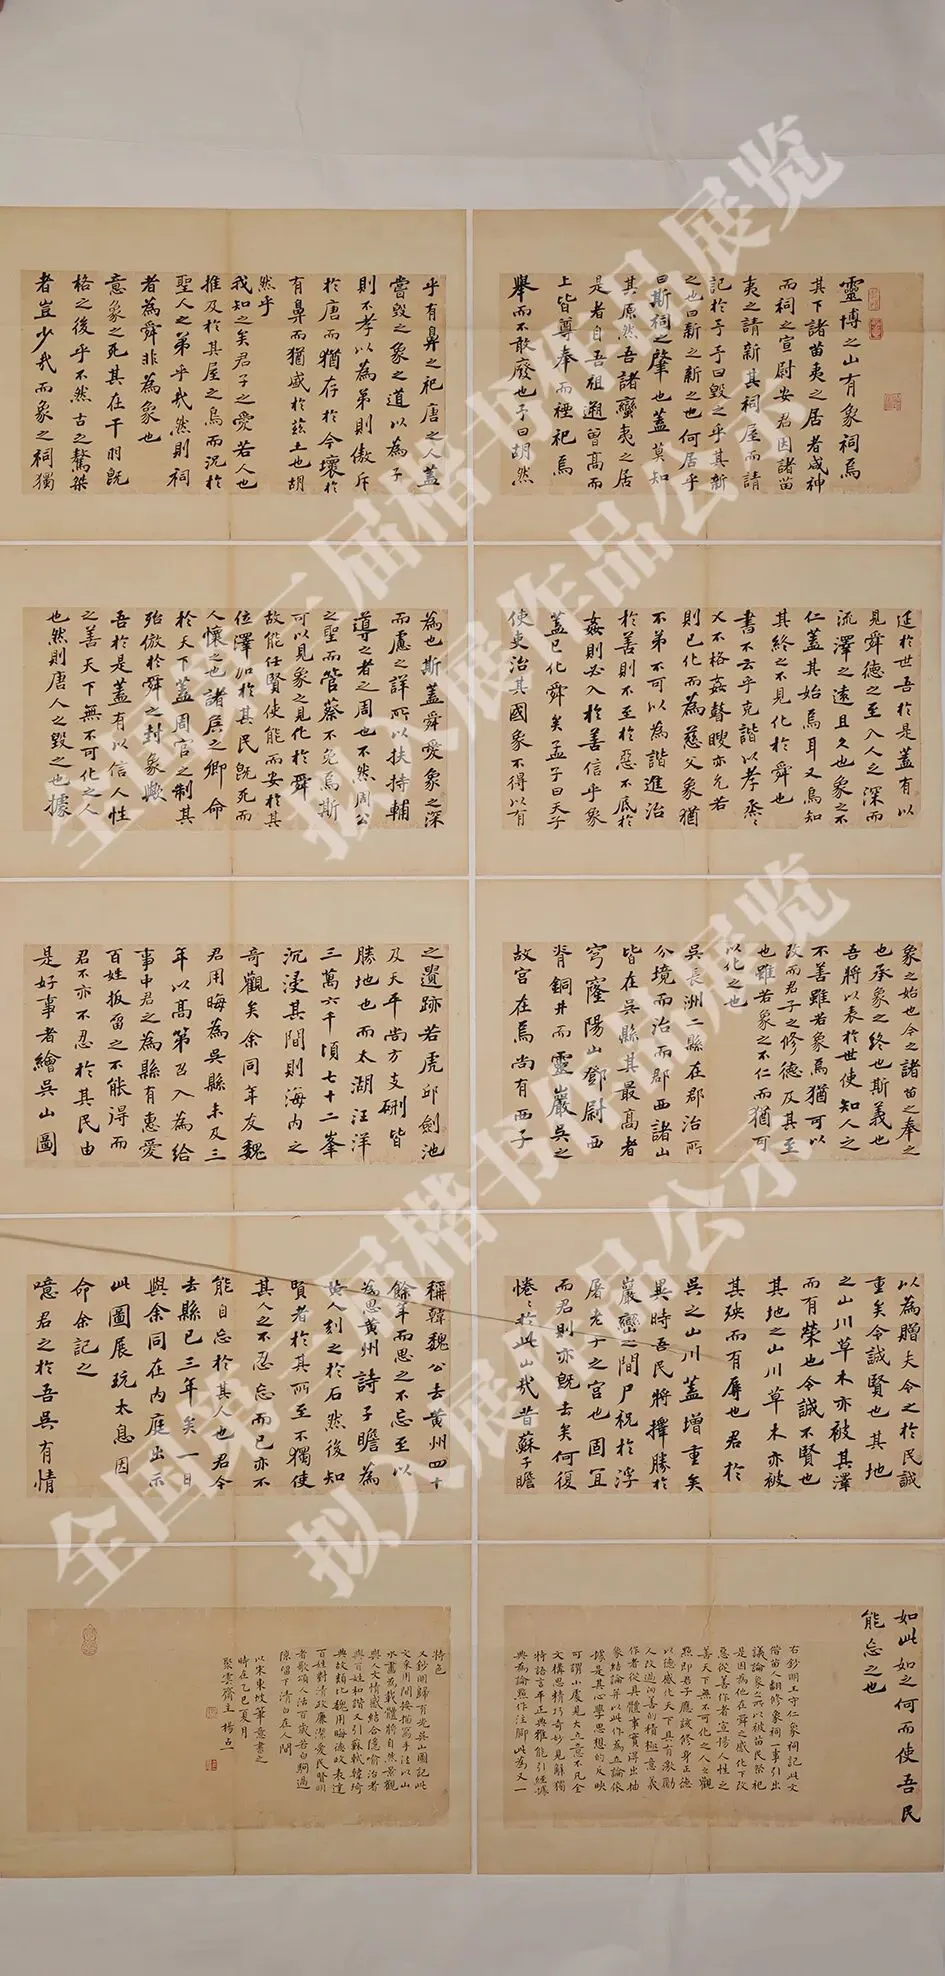 靈博之山有象祠焉
其下諸苗夷之居者咸神
而祠之宣尉安君因諸苗
夷之請新其祠屋而請
記於予予曰毀之乎其新
之也曰新之新之也何居乎
曰斯祠之肇也蓋莫知
其原然吾諸蠻夷之居
是者自吾祖遡曾高而
上皆尊奉而禋祀焉
舉而不敢廢也予曰胡然
乎有鼻之祀唐之人蓋
嘗毀之象之道以為子
則不孝以為弟則傲斥
於唐而猶存於今壞於
有鼻而猶盛於茲土也胡
然乎
我知之矣君子之愛若人也
推及於其屋之烏而況於
聖人之弟乎哉然則祠
者為舜非為象也
意象之死其在干羽既
格之後乎不然古之驁桀
者豈少哉而象之祠獨
延於世吾於是蓋有以
見舜德之至入人之深而
流澤之遠且久也象之不
仁蓋其始焉耳又烏知
其終之不見化於舜也
書不云乎克諧以孝烝〻
乂不格姦瞽瞍亦允若
則已化而為慈父象猶
不弟不可以為諧進治
於善則不至於惡不底於
姦則必入於善信乎象
蓋已化舜矣孟子曰天子
使吏治其國象不得以有
為也斯蓋舜愛象之深
而慮之詳所以扶持輔
導之者之周也不然周公
之聖而管蔡不免焉斯
可以見象之見化於舜
故能任賢使能而安於其
位澤加於其民既死而
人懷之也諸侯之卿命
於天下蓋周官之制其
殆倣於舜之封象歟
吾於是蓋有以信人性
之善天下無不可化之人
也然則唐人之毀之也據
象之始也今之諸苗之奉之
也承象之終也斯義也
吾將以表於世使知人之
不善雖若象焉猶可以
改而君子之修德及其至
也雖若象之不仁而猶可
以化之也
吳長洲二縣在郡治所
分境而治而郡西諸山
皆在吳縣其最高者
穹窿陽山鄧尉西
脊銅井而靈巖吳之
故宮在焉尚有西子
之遺跡若虎邱劍池
及天平尚方支硎皆
勝地也而太湖汪洋
三萬六千頃七十二峯
沉浸其間則海內之
奇觀矣余同年友魏
君用晦為吳縣未及三
年以高第召入為給
事中君之為縣有惠愛
百姓扳留之不能得而
君不亦不忍於其民由
是好事者繪吳山圖
以為贈夫令之於民誠
重矣令誠賢也其地
之山川草木亦被其澤
而有榮也令誠不賢也
其地之山川草木亦被
其殃而有辱也君於
吳之山川蓋增重矣
異時吾民將擇勝於
巖巒之間尸祝於浮
屠老子之宮也固宜
而君則亦既去矣何復
惓〻於此山哉昔蘇子瞻
稱韓魏公去黃州四十
餘年而思之不忘至以
為思黃州詩子瞻為
黃人刻之於石然後知
賢者於其所至不獨使
其人之不忍忘而已亦不
能自忘於其人也君今
去縣已三年矣一日
與余同在內庭出示
此圖展玩太息因
命余記之
噫君之於吾吳有情
如此如之何而使吾民
能忘之也
右鈔明王守仁象祠記此文
借苗人翻修象祠一事引出
議論象之所以被苗民祭祀
是因為他在舜之感化下改
惡從善作者宣揚人性之
善天下無不可化之人之觀
點即君子應該修身正德
以德感化天下具有激勵
人改過向善的積極意義
作者從具體事實得出抽
象結論并以此作為立論依
據是其心學思想的反映
可謂小處見大立意不凡全
文構思精巧奇妙見解獨
特語言平正典雅能引經據
典為論點作注腳此為又一
特色
又鈔明歸有光吳山圖記此
文采用間接描寫手法以山
水畫為載體將自然景觀
與人文情感結合隱喻治者
與百姓和諧又引蘇軾韓琦
典故類比魏用晦德政表達
百姓對清政廉潔愛民賢明
者歌頌人活百歲若白駒過
隙留下清白在人間
以宋東坡筆意書之
時在乙巳夏月
聚雲齋主
全国第三届楷书作品展览
拟入展作品公示
全国第三届楷书作品展览
拟入展作品公示